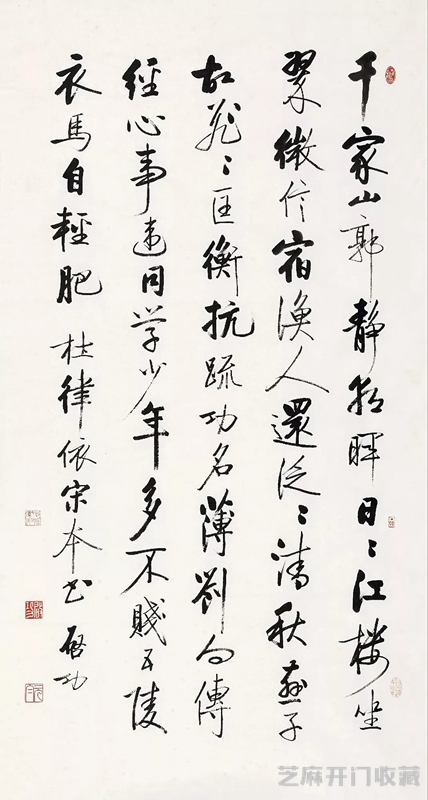 千家山郭静朝晖日日江楼坐
翠微信宿渔人还泛泛清秋燕子
故飞飞匡衡抗疏功名薄刘向传
经心事违同学少年多不贱五陵
衣马自轻肥 杜律依宋本书 启功
芝麻开门收藏